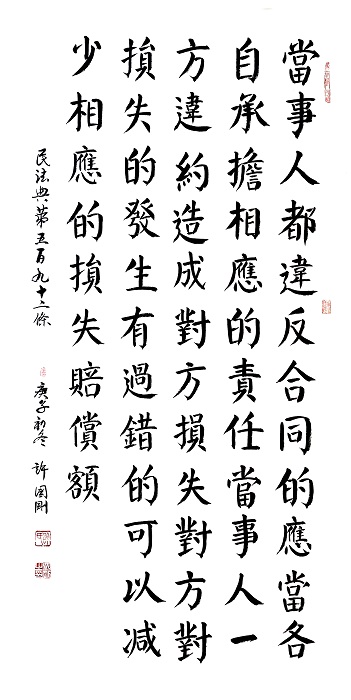 當事人都違反合同的應當各
自承擔相應的責任當事人一
方違約造成對方損失對方對
損失的發生有過錯的可以減
少相應的損失賠償額
民法典第五百九十二條
庚子初冬 許國剛